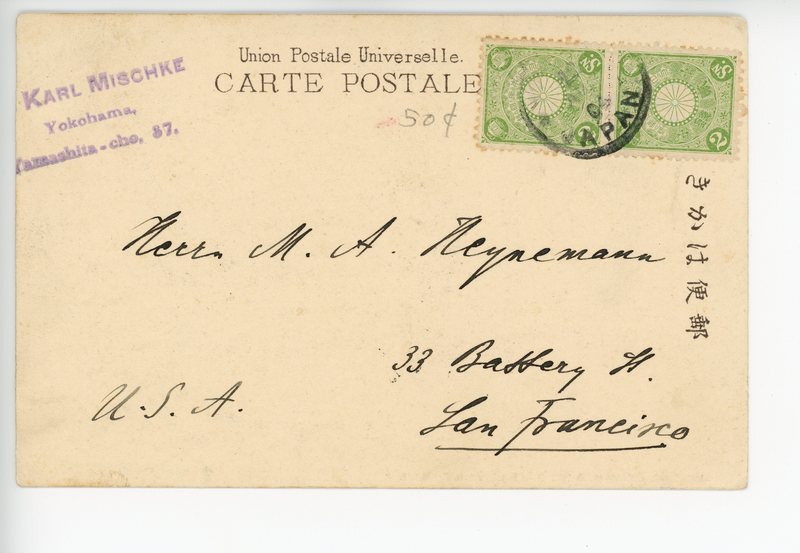 KARL MISCHKE
Yokohama,
Yamashita-cho, 57.
Union Postale Universelle.
CARTE POSTALE
50¢
JAPAN
Sn
2
Sn
2
きかは便郵
Herrn M. A. Heynemann
33 Battery St.
San Francisco
U.S.A.